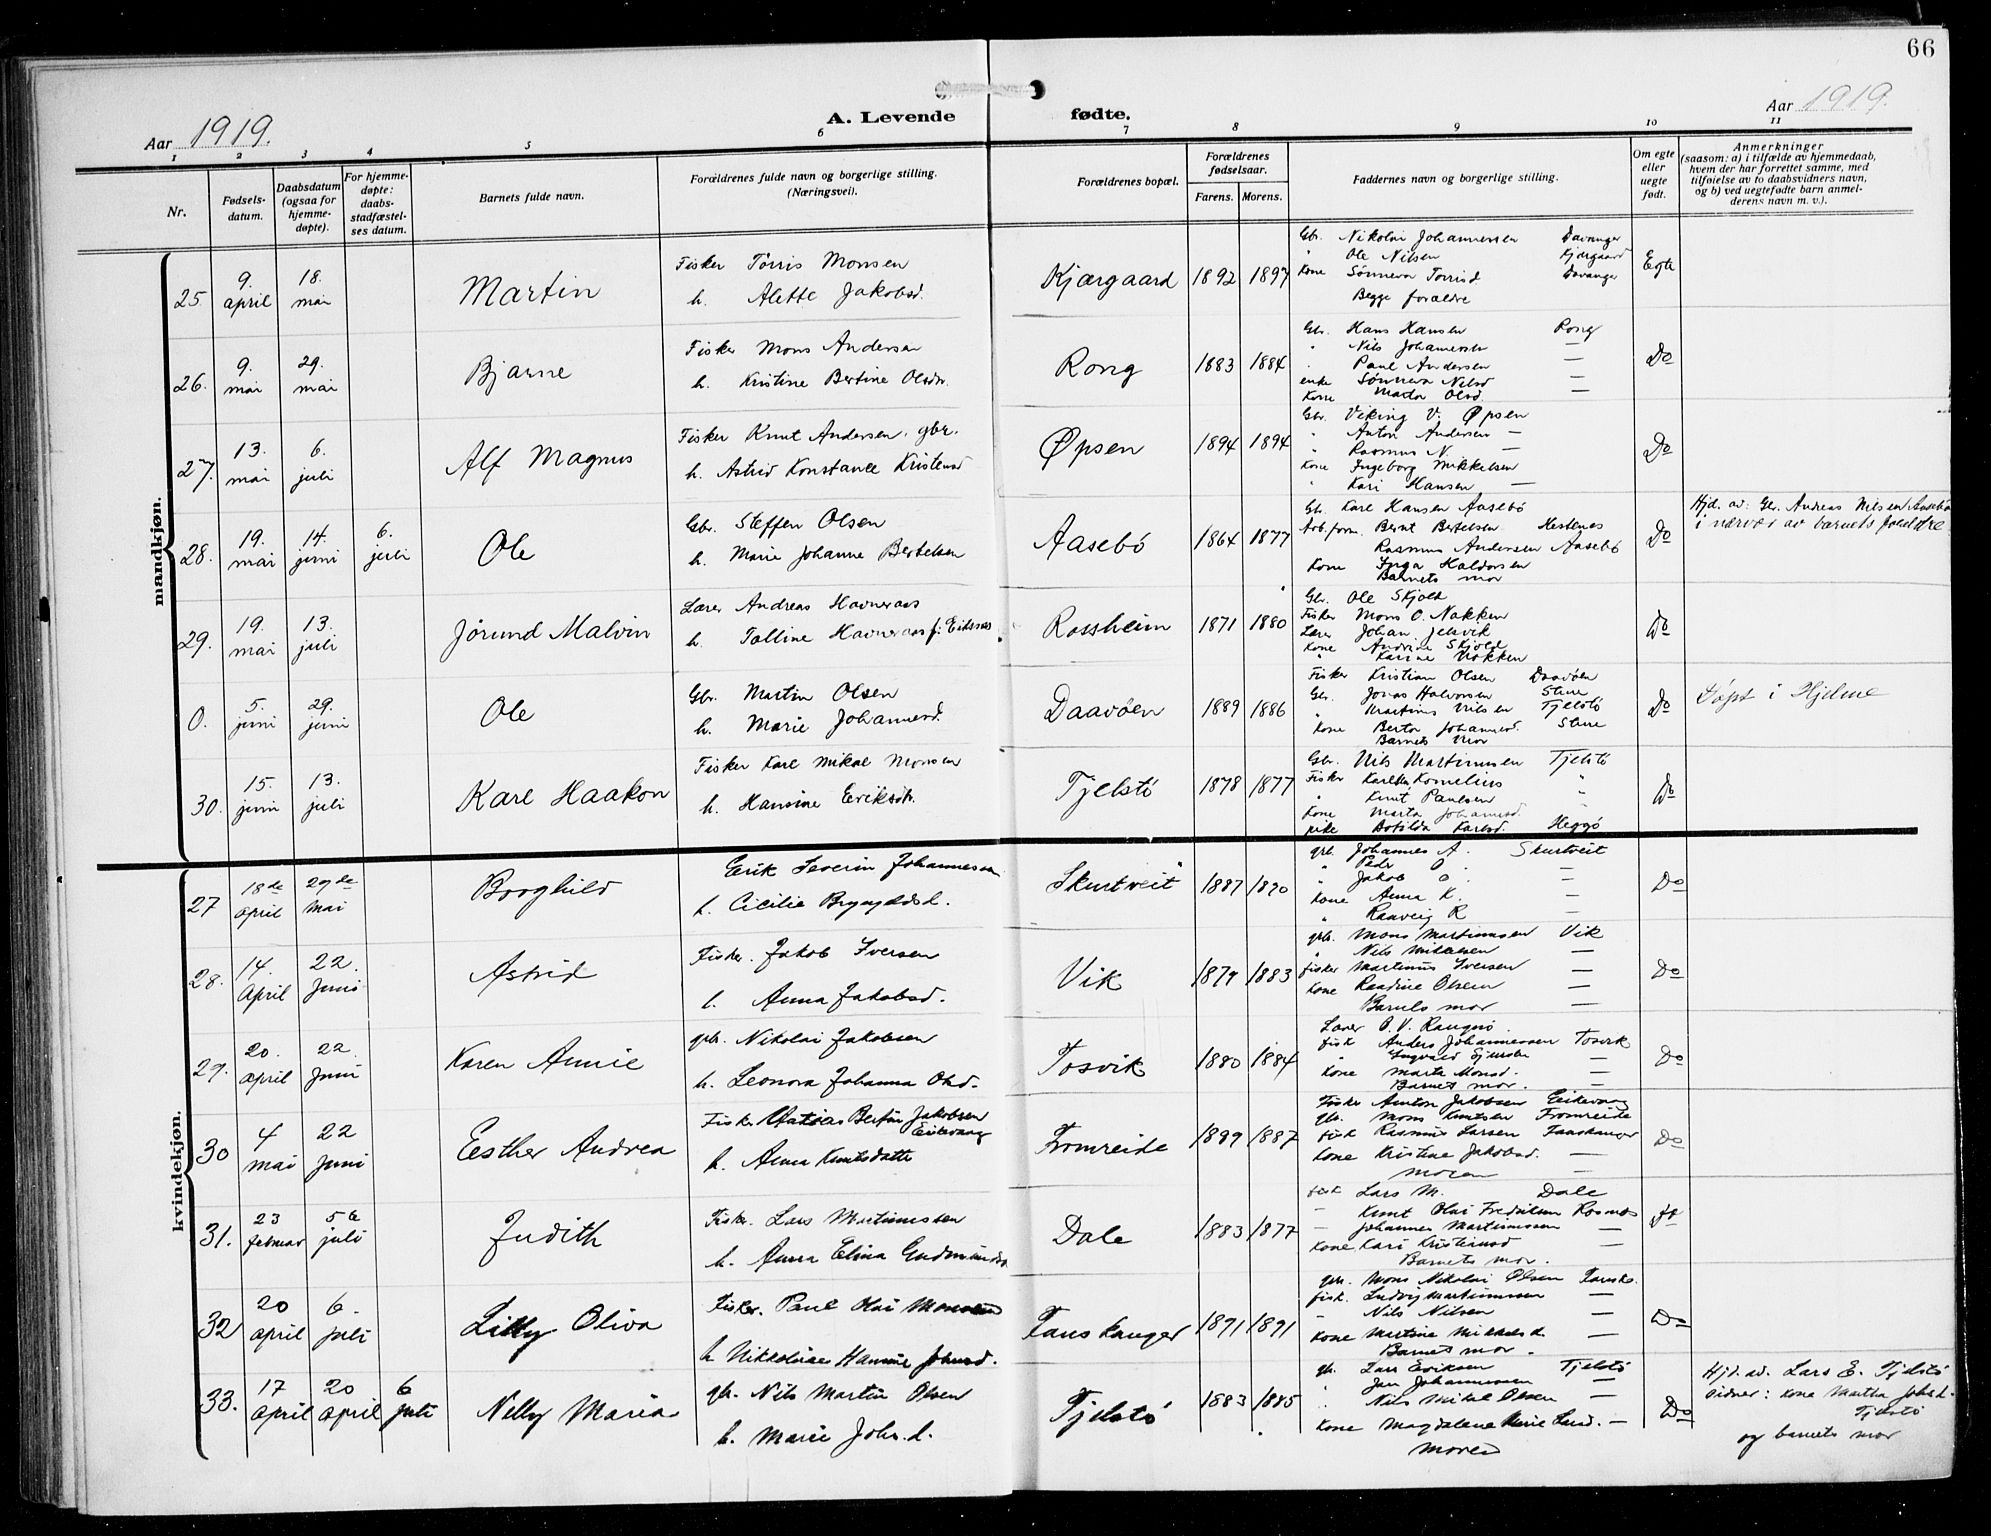 66
Aar 1919.
A. Levende fødte.
Aar 1919.
1 2 3 4 5 6 7 8 9 10 11
Nr.
Fødsels-
datum.
Daabsdatum
(ogsaa for
hjemme-
døpte).
For hjemme-
døpte:
daabs-
stadfæstel-
ses datum.
Barnets fulde navn.
Forældrenes fulde navn og borgerlige stilling.
(Næringsvei).
Forældrenes bopæl.
Forældrenes
fødselsaar.
Farens. Morens.
Faddernes navn og borgerlige stilling.
Om egte
eller
uegte
født.
Anmerkninger
(saasom: a) i tilfælde av hjemmedaab,
hvem der har forrettet samme, med
tilføielse av to daabsvidners navn,
og b) ved uegtefødte barn anmel-
derens navn m. v.).
mandkjøn.
25. 9. april 18. mai Martin
Fisker Torris Monsen
h. Alette Jakobsd.
Kjærgaard 1892 1897
Gbr. Nikolai Johannessen Davanger
" Ole Nilsen Kjærgaard
Kone Sønneva Torrisd Davanger
Begge forældre
Egte
26. 9. mai 29. mai Bjarne
Fisker Mons Andersen
h. Kristine Bertine Olsdr.
Rong 1883 1884
Gbr. Hans Hansen Rong
" Nils Johannessen —
" Paul Andersen —
enke Sønneva Nilsd —
Kone Marta Olsd. —
Do
27. 13. mai 6. juli Alf Magnus
Fisker Knut Andersen, gbr.
h. Astrid Konstanse Kristensd
Øpsen 1894 1894
Gbr. Viking V. Øpsen
" Anton Andersen —
" Rasmus N. —
Kone Ingeborg Mikkelsen
" Kari Hansen —
Do
28. 19. mai 14. juni 6. juli Ole
Gbr. Steffen Olsen
h. Marie Johanne Bertelsen
Aasebø 1864 1877
Gb. Karl Hansen Aasebø
Arb.form. Bernt Bertelsen Hestenes
Rasmus Andersen Aasebø
Kone Inga Haldorsen
Barnets mor
Do
Hjd. av: Gbr. Andreas Nilsen Aasebø
i nærvær av barnets forældre
29. 19. mai 13. juli Jørund Malvin
Lærer Andreas Havneraas
h. Talline Havneraas f. Eiksnes
Rossheim 1871 1880
Gbr. Ole Skjold
Fisker Mons O. Nakken
Lærer Johan
Kone Andrine Skjold
" Karine Nakken
Do
0. 5. juni 29. juni Ole
Gbr. Martin Olsen
h. Marie Johannesd.
Daavøen 1889 1886
Fisker Kristian Olsen Daavøen
Gbr. Jonas Halvorsen Sture
" Martines Nilsen Tjelstø
Kone Berta Johannesd. Sture
Barnets Mor
Do
Døpt i Hjelme
30. 15. juni 13. juli Karl Haakon
Fisker Karl Mikal Monsen
h. Hansine Eriksdtr.
Tjelstø 1878 1877
Gbr. Nils Martinussen Tjelstø
Fisker Karlsen Kornelius "
" Knut Paulsen "
Kone Marta Johannesd.
pike Botilda Karlsd. Heggø
Do
kvindekjøn.
27 18de april 29de Mai Borghild
Erik Severin Johannessen
h. Cicilie Brynjeldsd.
Skurtveit 1887 1890
gbr. Johannes A. Skurtveit
" Peder O. —
" Jakob O. —
Kone Anna K. —
" Raaveig R —
Do
28. 14. April 22. Juni Astrid
Fisker. Jakob Iversen
h. Anna Jakobsd.
Vik 1879 1883
gbr. Mons Martinussen Vik
" Nils Mikalsen —
fisker Martinus Iversen —
Kone Raadine Olsen —
Barnets mor —
Do
29. 20. april 22. Juni Karen Annie
gbr. Nikolai Jakobsen
h. Leonora Johanna Olsd.
Tosvik 1880 1884
Lærer O. V. Rangnø.
fisk Anders Johannessen Tosvik
Kone Marta Monsd. —
Barnets mor. —
Do
30 4 mai 22 Juni Esther Andrea
Fisker Matias Bertin Jakobsen
Eikevaag
h. Anna Knutsdatter
Fromreide 1889 1887
Fisker Anton Jakobsen Eikevaag
gbr. Mons Knutsen Fromreide
fisk Rasmus Larsen Faaskanger
Kone Kristine Jakobsd. —
Moren —
Do
31. 23 februar 5te juli Judith
Fisker. Lars Martinussen
h. Anna Elina Gudmundsd
Dale 1883 1877
fisk Lars M. Dale
— Knut Olai Fredriksen Rosnes
— Johannes Martinussen —
Kone Kari Kristensd —
Barnets mor.
Do
32 20 april 6. juli Lilly Oliva
Fisker. Paul Olai Monsen
h Nikkoline Hansine Johnsd.
Fanskanger 1891 1891
gbr. Mons Nikolai Olsen Fansk.
fisk. Ludvig Martinussen —
Nils Nilsen —
Kone Martine Mikkelsd. —
Barnets mor.
Do
33. 17 april 20 april 6 juli Nelly Maria
gbr. Nils Martin Olsen
h. Marie Johs.d.
Tjelstø 1883 1885
gb. Lars Eriksen Tjelstø
" Jan Johannessen —
" Nils Mikal Olsen —
Kone Magdalene Marie Larsd. —
Moren
Do
Hjd. av. Lars E. Tjelstø
vidner: kone Martha Johsd.
Tjelstø
og barnets mor